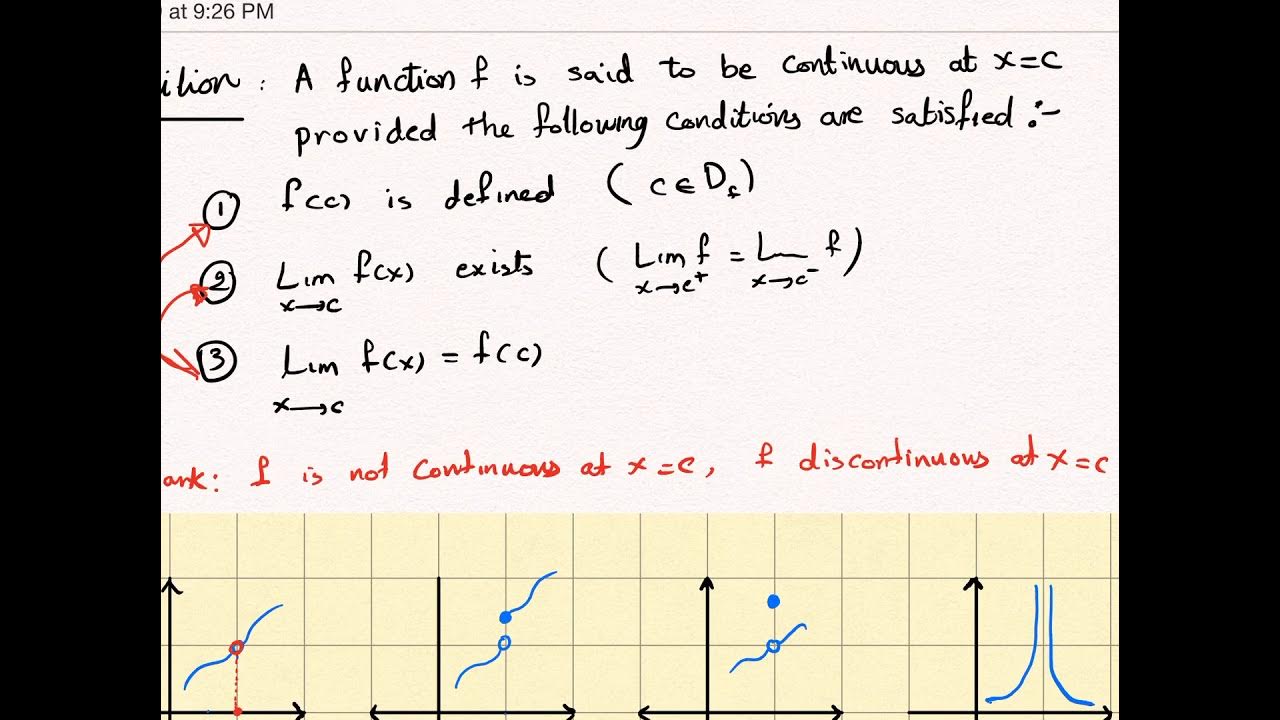 at 9:26 PM
ition : A function f is said to be continuous at x=c
provided the following conditions are satisfied :-
1 f(c) is defined ( c ∈ D_f )
2 Lim x→c f(x) exists ( Lim x→c⁺ f = Lim x→c⁻ f )
3 Lim x→c f(x) = f(c)
ark: f is not continuous at x=c, f discontinuous at x=c